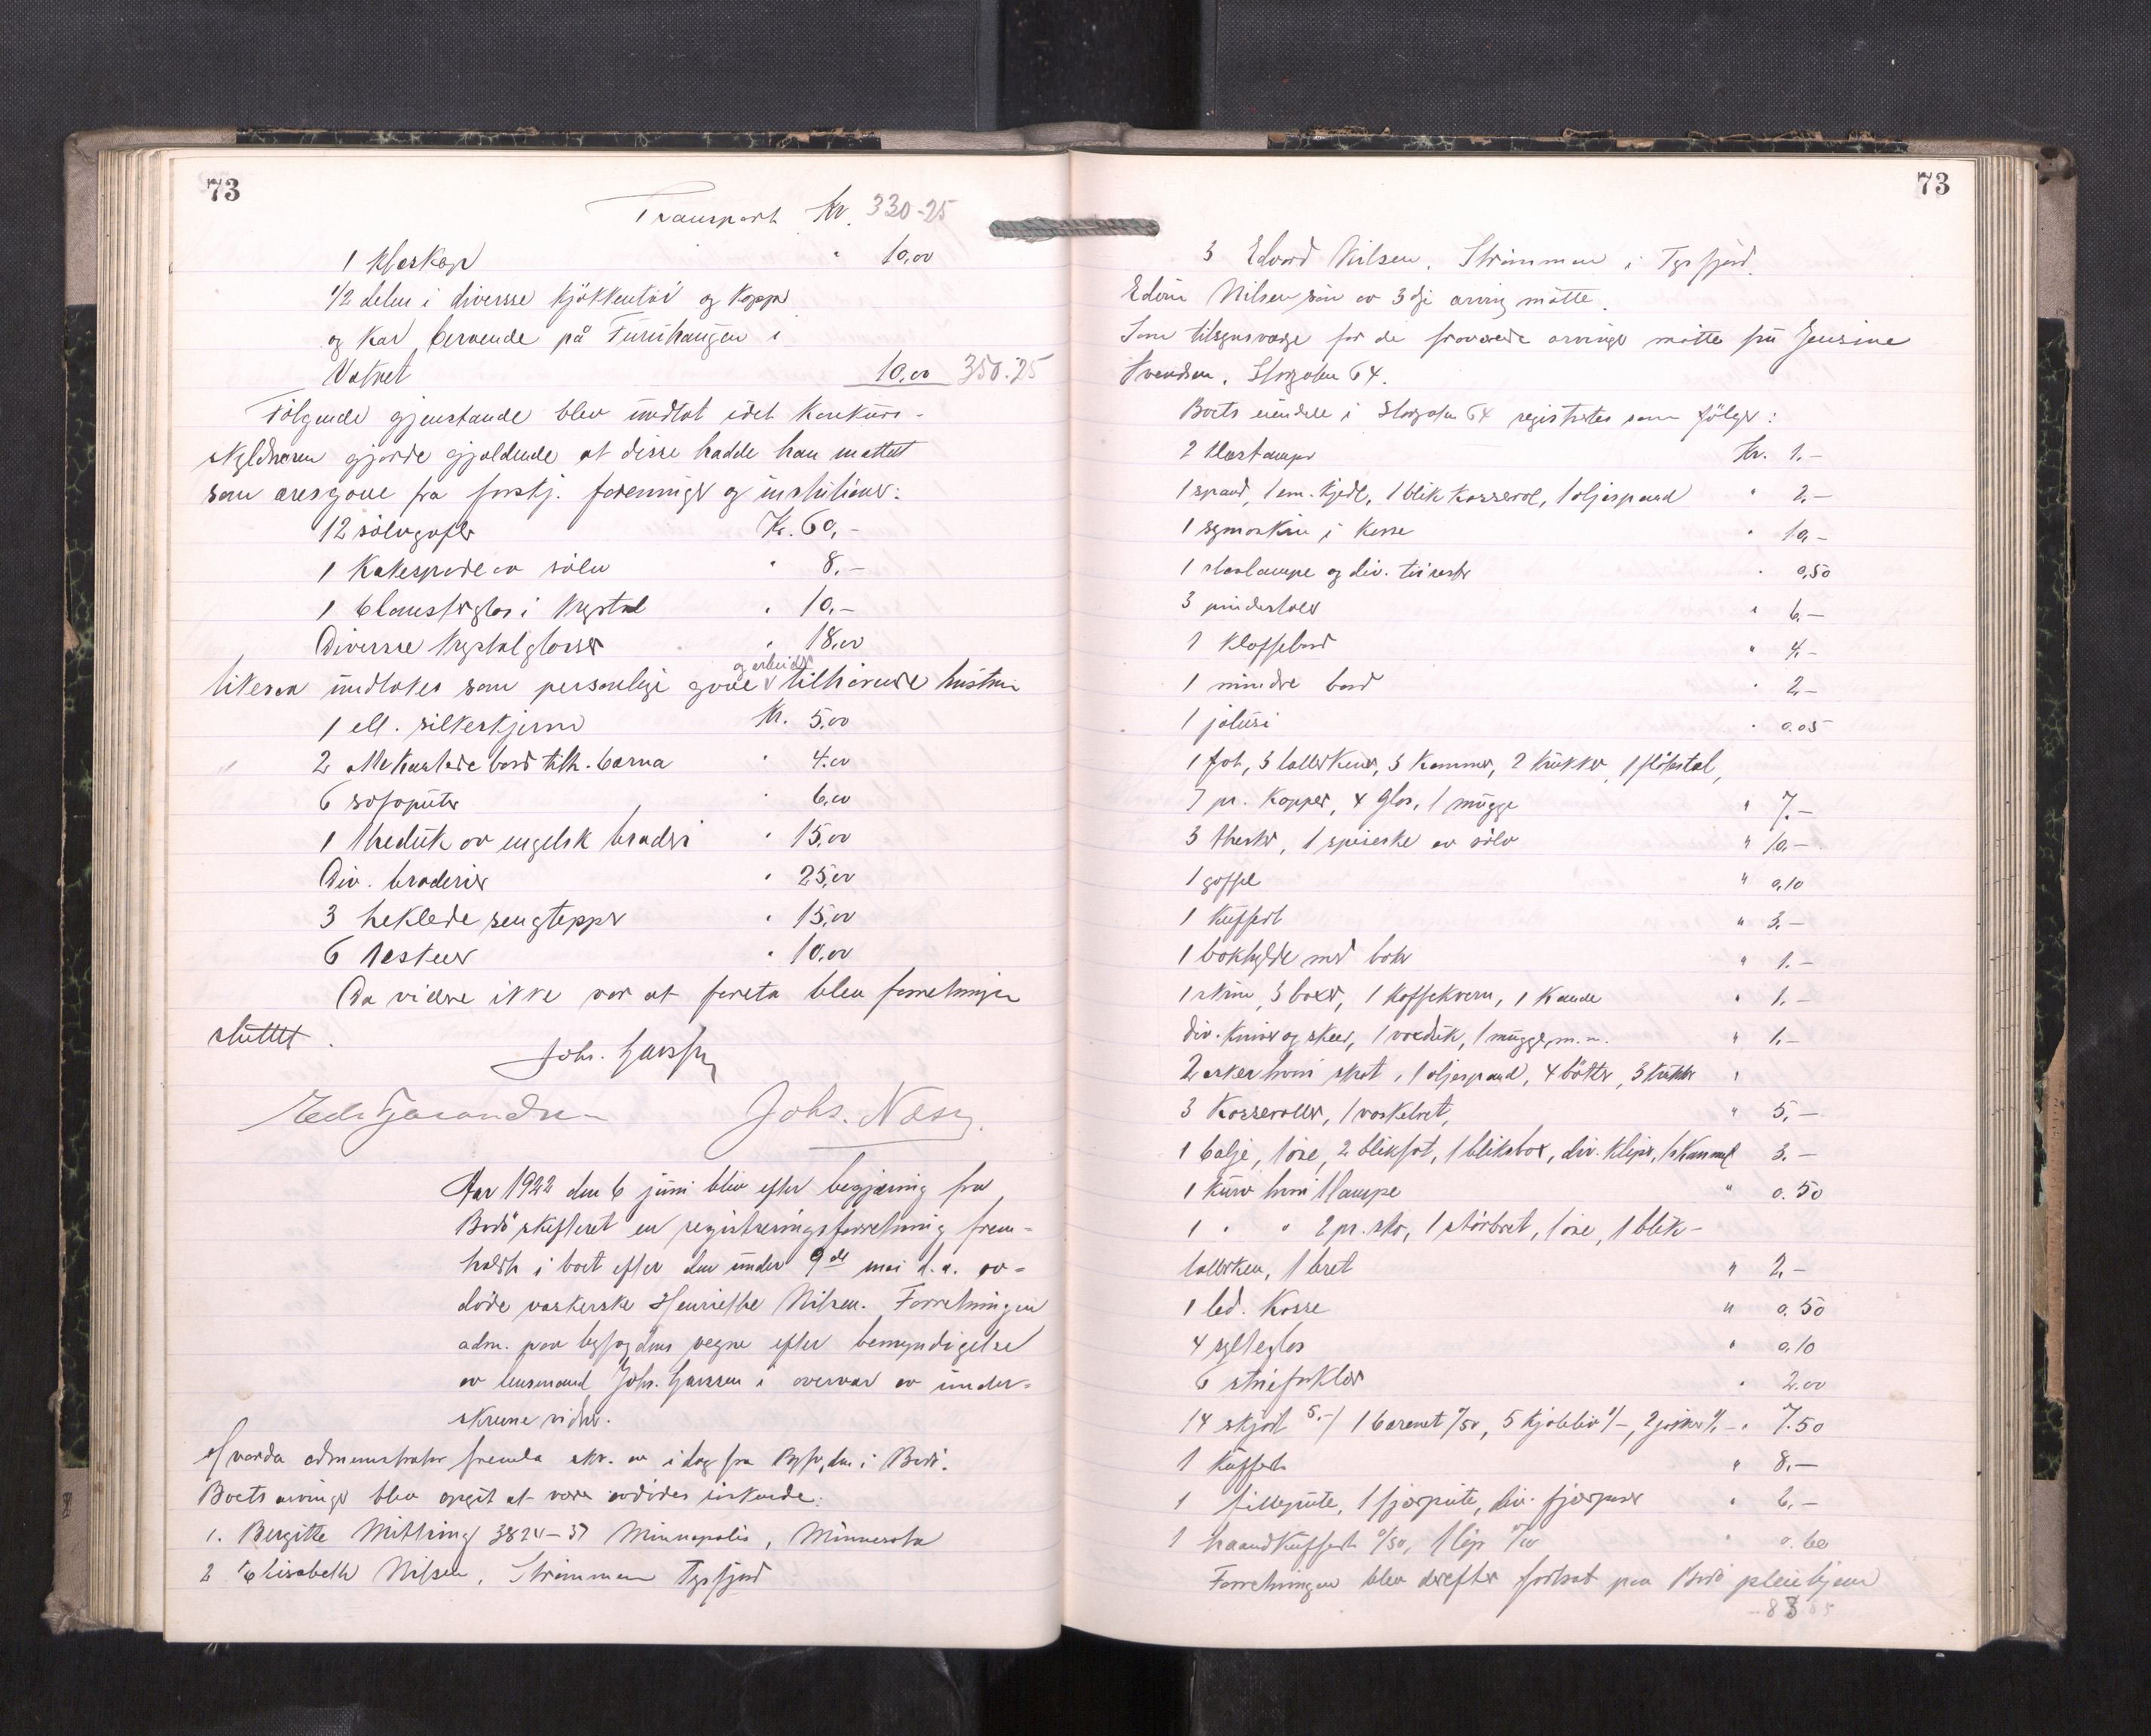 73
Transport Kr. 330-25
1 klæskap " 10,00
1/2 delen i diversse kjökkentöi og kopper
og kar beroende på Furuhaugen i
Vatnet 10,00 350.25
Fölgende gjenstande blev undtat idet konkurs-
skyldneren gjorde gjældende at disse hadde han mottat
som æresgave fra forskj. foreninger og institutioner:
12 sölvgafler Kr. 60,-
1 kakespade av sölv " 8.-
1 blomsterglas i krystal " 10.-
Diversse krystalglasser " 18,00
likesaa undtokes som personlige gave og arbeider tilhörende hustru
1 ell. silkeskjerm Kr. 5,00
2 ottekantede bord tilh. barna " 4.00
6 sofaputer " 6,00
1 theduk av engelsk broderi " 15,00
Div. broderier " 25,00
3 heklede sengtepper " 15,00
6 " 10,00
Da videre ikke var at foreta blev forretningen
sluttet.
Johs. Hanssen
Johs. Næss
Aar 1922 den 6 juni blev efter begjæring fra
Bodö skifteret en registreringsforretning frem-
holdt i boet efter den under 9de mai d.a. av-
döde vaskerske Henriette Nilsen. Forretningen
adm. paa byfogdens vegne efter bemyndigelse
av lensmand Johs. Hanssen i overvær av under-
skrevne vidner.
administrator fremla skr. av idag fra Byfogden i Bodö.
Boets arvinger blev opgit at være avdödes söskende:
1. Bergitte 3824-37 Minnapolis, Minnesota
2 Elisabeth Nilsen, Strömmen Tysfjord
73
3 Edvard Nilsen, Strömmen i Tysfjord.
Edvin Nilsen sön av 3dje arving mötte.
Som tilsynsværge for de fraværende arvinger mötte fru Jensine
Svendsen, Storgaten 64.
Boets eiendele i Storgaten 64 registrertes som fölger:
2 klæstamper Kr. 1.-
1 spand, 1 em. kjedl, 1 blik kasserol, 1 oljespand " 2.-
1 symaskin i kasse " 10,-
1 staalampe og div. töirester " 0,50
3 pindestoler " 6.-
1 klaffebord " 4.-
1 mindre bord " 2.-
1 jalusi " 0.05
1 fat, 3 tallerkener, 3 kammer, 2 krukker, 1
7 pr. kopper, 4 glas, 1 mugge " 7.-
3 theskr, 1 spiseske av sölv " 10.-
1 gaffel " 0,10
1 kuffert " 3.-
1 bokhylde med boker " 1.-
1 skrin, 3 boxer, 1 kaffekvern, 1 kande " 1.-
div. kniver og skeer, 1 voxduk, 1 mugge, m.m. " 1.-
2 esker hvori skrot, 1 oljespand, 4 bötter, 3 krukker "
3 kasseroller, 1 vaskebret, " 5.-
1 balje, 1 öse, 2 blikfat, 1 blikbox, div. kliper, 1 3.-
1 kurv hvori 1 lampe " 0.50
1 " " 2 pr. sko, 1 störbret, 1 öse, 1 blik-
tallerken, 1 bret " 2.-
1 led. kasse " 0.50
4 sylteglas " 0,10
6 " 2.00
14 skjört 5.-, 1 7/50, 5 kjoleliv 1/-, 2 jakker 1/- " 7.50
1 kuffert " 8.-
1 fillepute, 1 fjærpute, div. " 6.-
1 haandkuffert 0/50, 1 0/10 " 0.60
Forretningen blev derefter fortsat paa Bodö pleiehjem
83.85